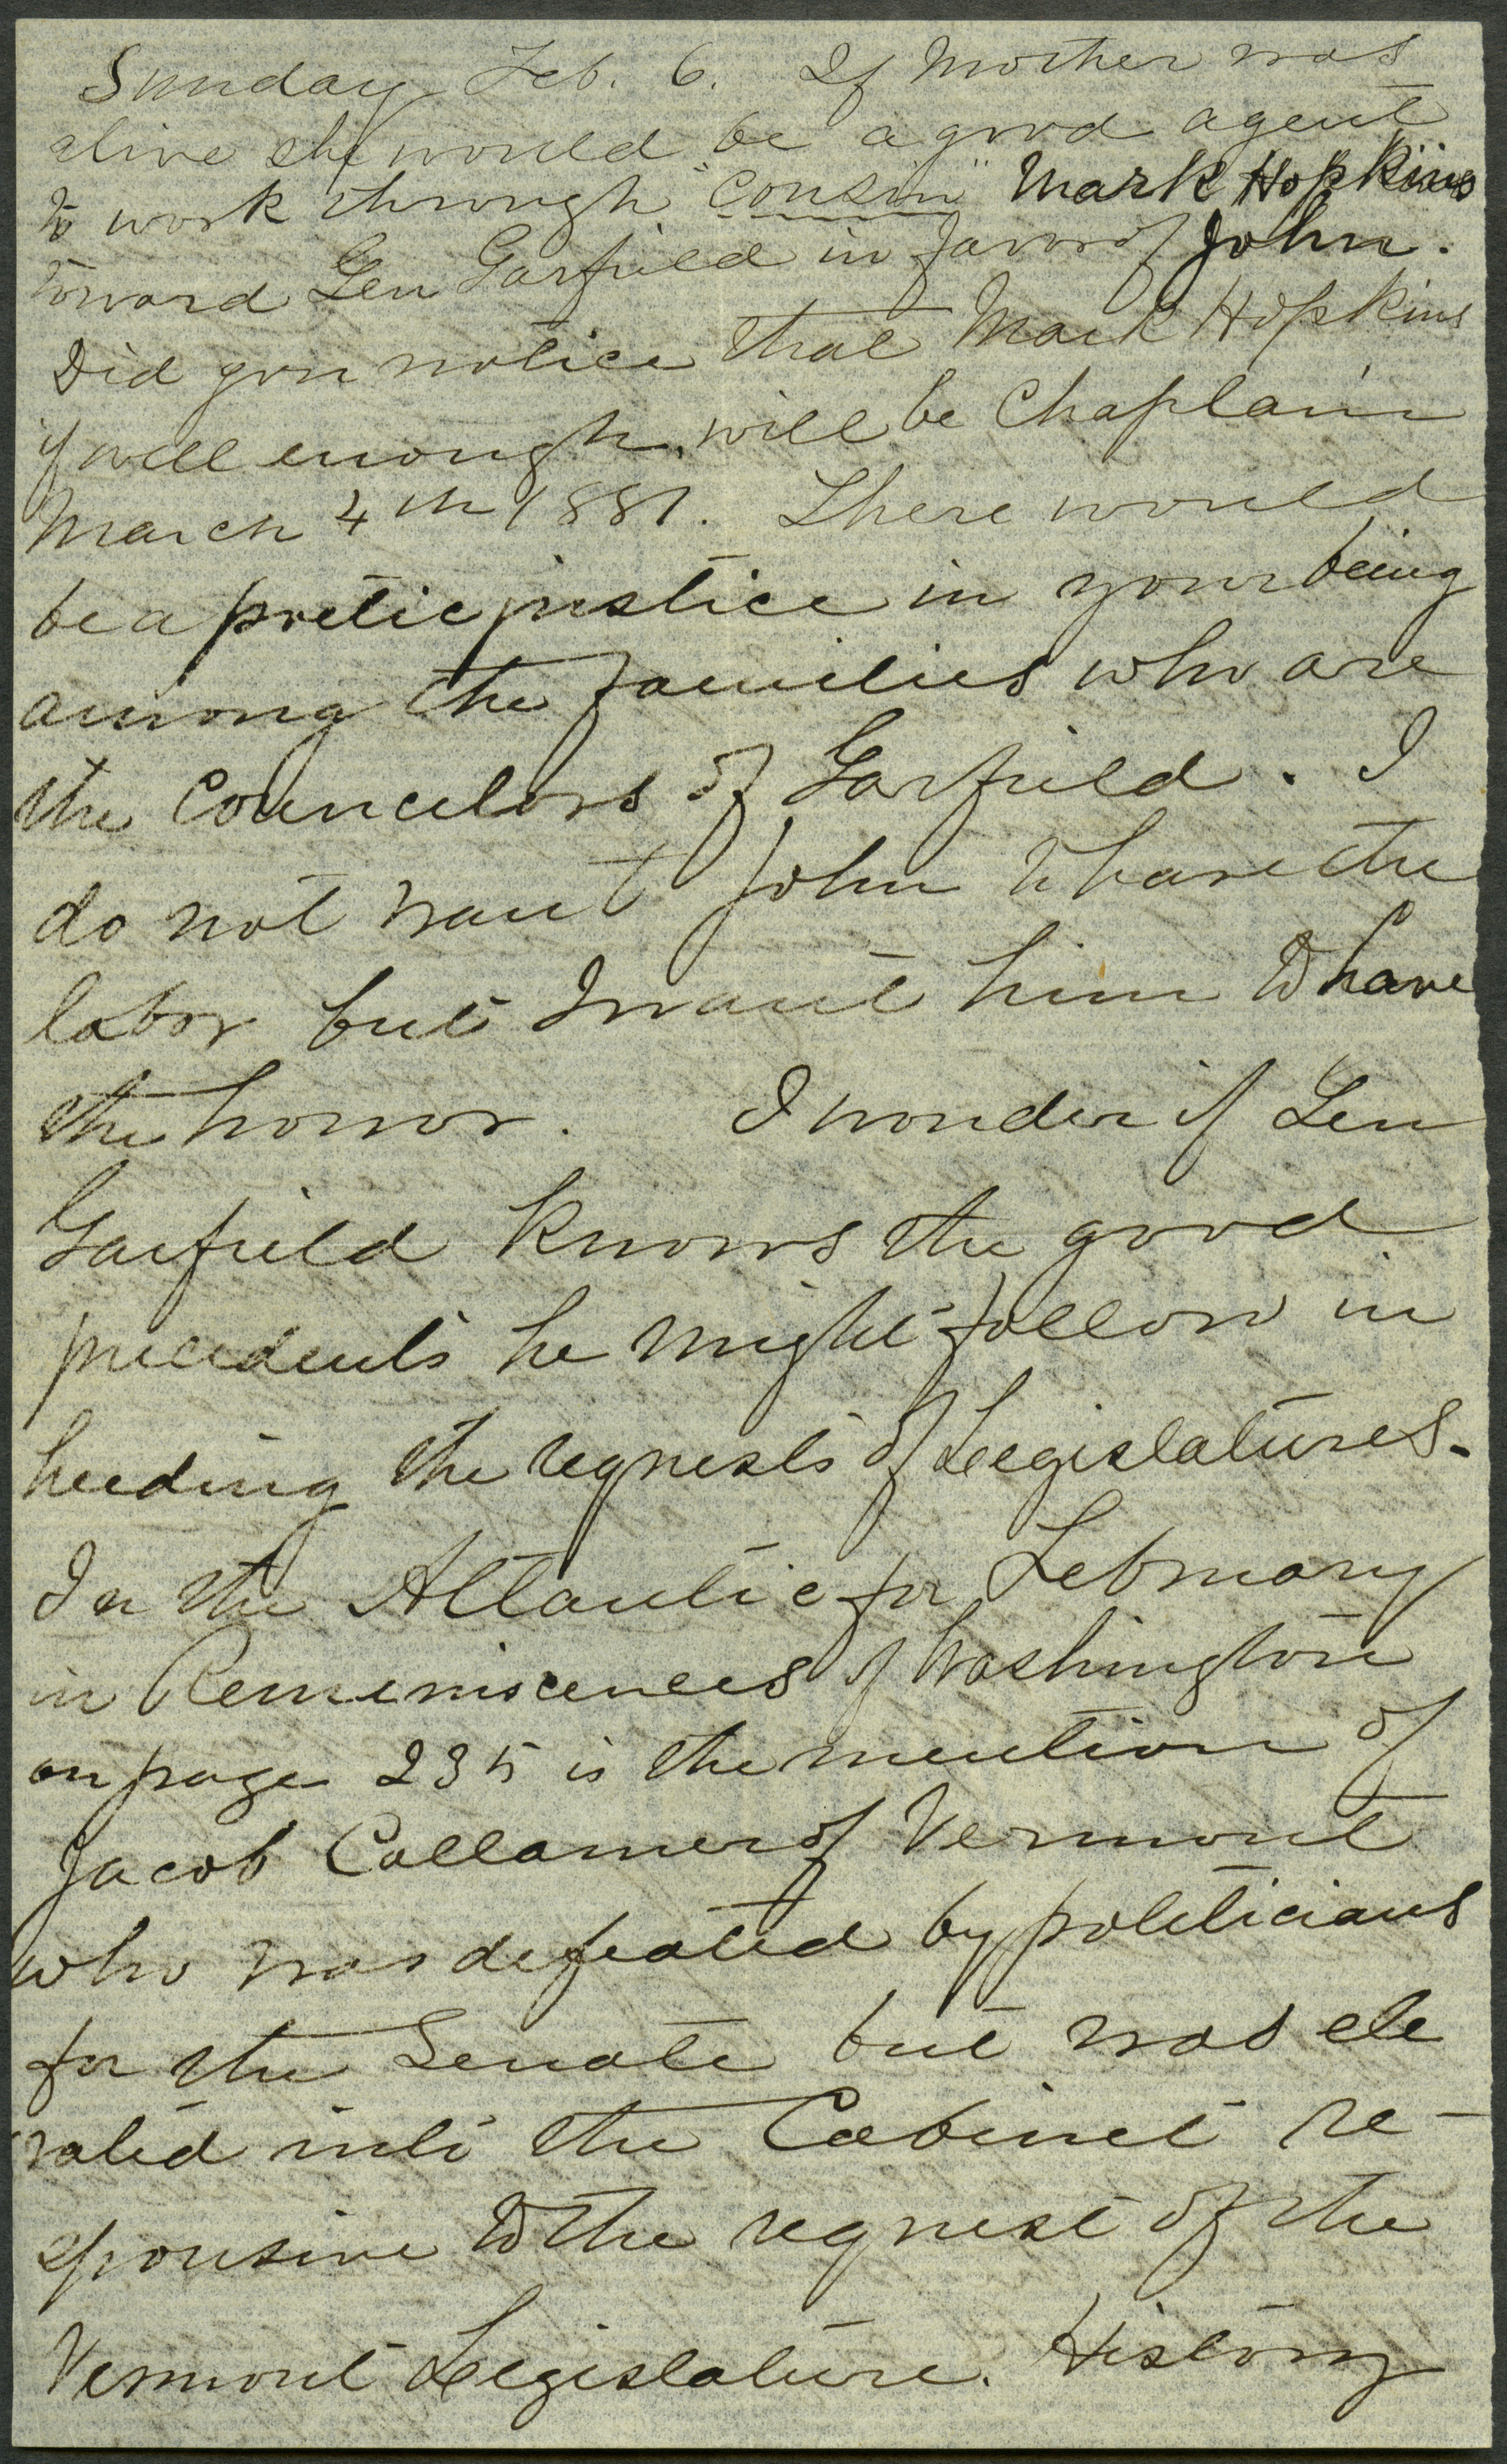 Sunday Feb. 6. If Mother was
alive she would be a good agent
to work through "Cousin" Mark Hopkins
toward Gen Garfield in favor of John.
Did you notice that Mark Hopkins
if well enough, will be Chaplain
March 4th 1881. There would
be a poetic justice in your being
among the families who are
the Councelors of Garfield. I
do not want John to have the
labor but I want him to have
the honor. I wonder if Gen
Garfield knows the good
precedents he might follow in
heeding the requests of Legislatures.
In the Atlantic for February
in Reminiscences of Washington
on page 235 is the mention of
Jacob Collamer of Vermont
who was defeated by politicians
for the Senate but was ele
vated into the Cabinet re-
sponsive to the request of the
Vermont Legislature. History